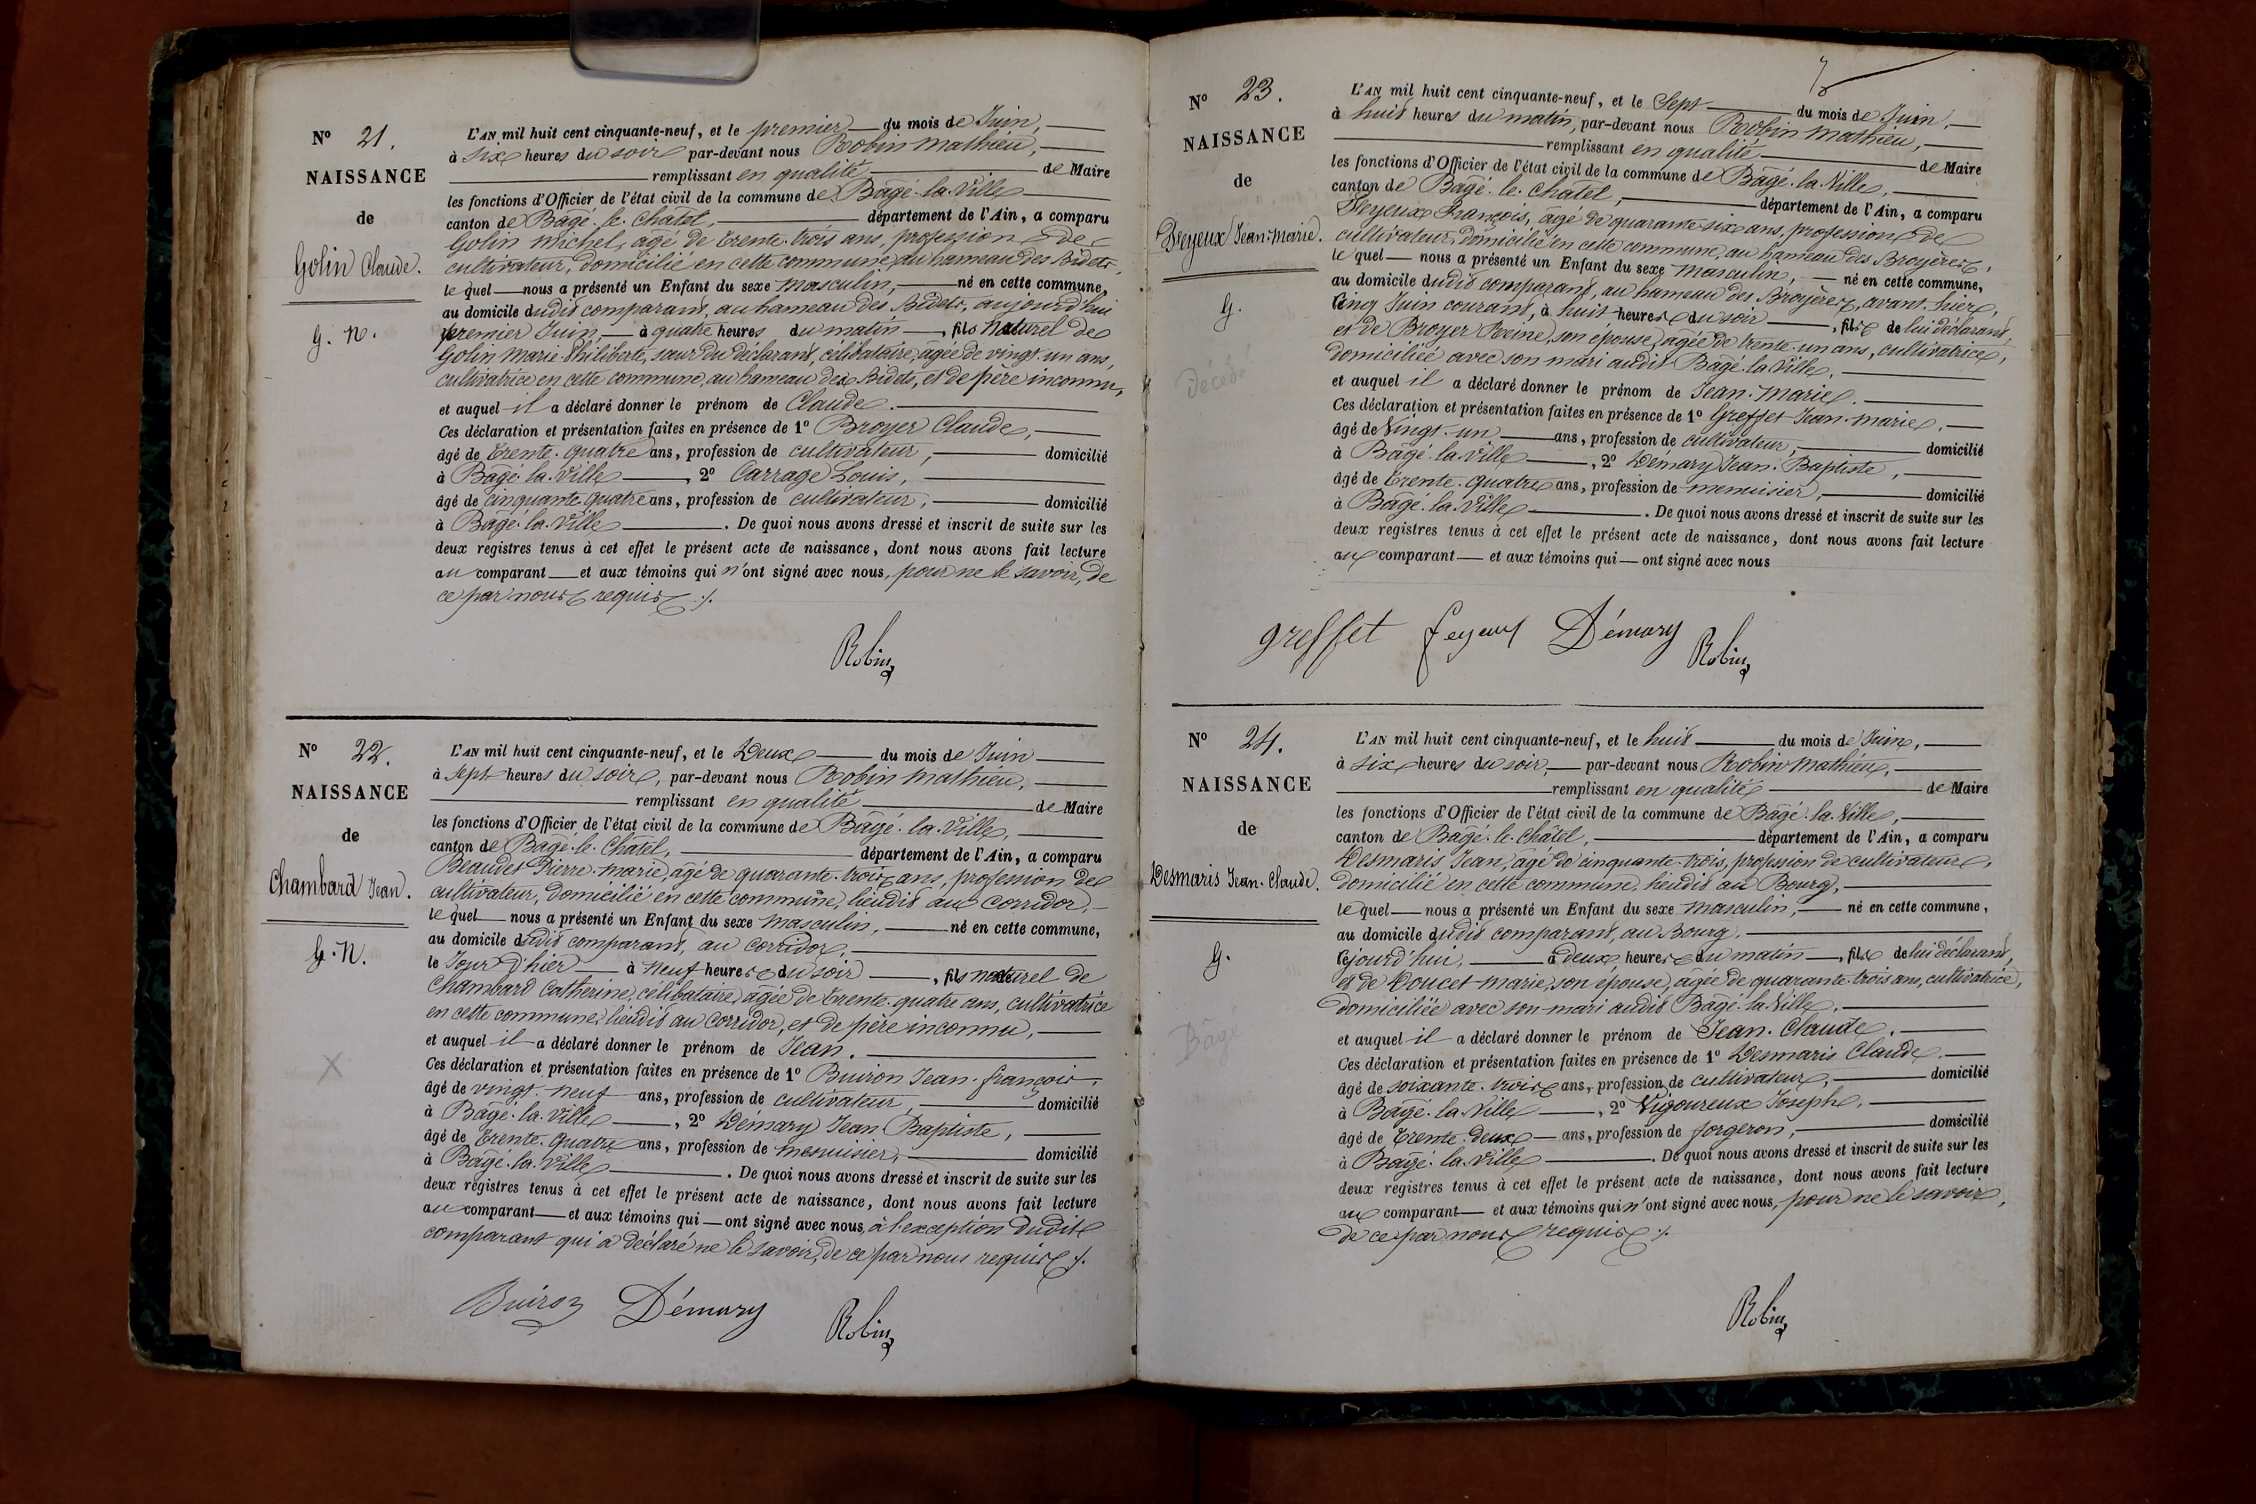 N° 21.
NAISSANCE
de
Golin Claude.
G. N.
L'AN mil huit cent cinquante-neuf, et le premier du mois de Juin,
à six heures du soir par-devant nous Robin Mathieu,
remplissant en qualité de Maire
les fonctions d'Officier de l'état civil de la commune de Bâgé-la-Ville
canton de Bâgé-le-Châtel, département de l'Ain, a comparu
Golin Michel, âgé de trente-trois ans, profession de
cultivateur, domicilié en cette commune, au hameau des Bidets,
lequel nous a présenté un Enfant du sexe masculin, né en cette commune,
au domicile dudit comparant, au hameau des Bidets, aujourd'hui
premier Juin, à quatre heures du matin, fils naturel de
Golin Marie-Philiberte, sœur du déclarant, célibataire, âgée de vingt-un ans,
cultivatrice en cette commune, au hameau des Bidets, et de père inconnu,
et auquel il a déclaré donner le prénom de Claude.
Ces déclaration et présentation faites en présence de 1° Broyer Claude,
âgé de trente-quatre ans, profession de cultivateur, domicilié
à Bâgé-la-Ville, 2° Carrage Louis,
âgé de cinquante-quatre ans, profession de cultivateur, domicilié
à Bâgé-la-Ville. De quoi nous avons dressé et inscrit de suite sur les
deux registres tenus à cet effet le présent acte de naissance, dont nous avons fait lecture
au comparant et aux témoins qui n'ont signé avec nous, pour ne le savoir, de
ce par nous requis ./.
Robin
N° 22.
NAISSANCE
de
Chambard Jean.
G. N.
X
L'AN mil huit cent cinquante-neuf, et le Deux du mois de Juin
à sept heures du soir, par-devant nous Robin Mathieu,
remplissant en qualité de Maire
les fonctions d'Officier de l'état civil de la commune de Bâgé-la-Ville,
canton de Bâgé-le-Châtel, département de l'Ain, a comparu
Beaudet Pierre-Marie, âgé de quarante-trois ans, profession de
cultivateur, domicilié en cette commune, lieudit au Corridor,
lequel nous a présenté un Enfant du sexe masculin, né en cette commune,
au domicile dudit comparant, au Corridor,
le Jour d'hier à neuf heures du soir, fils naturel de
Chambard Catherine, célibataire, âgée de trente-quatre ans, cultivatrice
en cette commune, lieudit au Corridor, et de père inconnu,
et auquel il a déclaré donner le prénom de Jean.
Ces déclaration et présentation faites en présence de 1° Buiron Jean-françois,
âgé de vingt-neuf ans, profession de cultivateur, domicilié
à Bâgé-la-Ville, 2° Démary Jean-Baptiste,
âgé de trente-quatre ans, profession de menuisier, domicilié
à Bâgé-la-Ville. De quoi nous avons dressé et inscrit de suite sur les
deux registres tenus à cet effet le présent acte de naissance, dont nous avons fait lecture
au comparant et aux témoins qui ont signé avec nous, à l'exception dudit
comparant qui a déclaré ne le savoir, de ce par nous requis ./.
Buiron Démary Robin
N° 23.
NAISSANCE
de
Feyeux Jean-Marie.
G.
Décédé
L'AN mil huit cent cinquante-neuf, et le Sept du mois de Juin,
à huit heures du matin, par-devant nous Robin Mathieu,
remplissant en qualité de Maire
les fonctions d'Officier de l'état civil de la commune de Bâgé-la-Ville,
canton de Bâgé-le-Châtel, département de l'Ain, a comparu
Feyeux François, âgé de quarante-six ans, profession de
cultivateur, domicilié en cette commune, au hameau des Broyères,
lequel nous a présenté un Enfant du sexe masculin, né en cette commune,
au domicile dudit comparant, au hameau des Broyères, avant-hier,
cinq Juin courant, à huit heures du soir, fils de lui déclarant,
et de Broyer Reine, son épouse, âgée de trente-un ans, cultivatrice,
domiciliée avec son mari audit Bâgé-la-Ville,
et auquel il a déclaré donner le prénom de Jean-Marie.
Ces déclaration et présentation faites en présence de 1° Greffet Jean-Marie,
âgé de vingt-un ans, profession de cultivateur, domicilié
à Bâgé-la-Ville, 2° Démary Jean-Baptiste,
âgé de trente-quatre ans, profession de menuisier, domicilié
à Bâgé-la-Ville. De quoi nous avons dressé et inscrit de suite sur les
deux registres tenus à cet effet le présent acte de naissance, dont nous avons fait lecture
au comparant et aux témoins qui ont signé avec nous
greffet feyeux Démary Robin
N° 24.
NAISSANCE
de
Desmaris Jean-Claude.
G.
Bâgé
L'AN mil huit cent cinquante-neuf, et le huit du mois de Juin,
à six heures du soir, par-devant nous Robin Mathieu,
remplissant en qualité de Maire
les fonctions d'Officier de l'état civil de la commune de Bâgé-la-Ville,
canton de Bâgé-le-Châtel, département de l'Ain, a comparu
Desmaris Jean, âgé de cinquante-trois, profession de cultivateur,
domicilié en cette commune, lieudit au Bourg,
lequel nous a présenté un Enfant du sexe masculin, né en cette commune,
au domicile dudit comparant, au Bourg,
cejourd'hui, à deux heures du matin, fils de lui déclarant,
et de Doucet Marie, son épouse, âgée de quarante-trois ans, cultivatrice,
domiciliée avec son mari audit Bâgé-la-Ville,
et auquel il a déclaré donner le prénom de Jean-Claude.
Ces déclaration et présentation faites en présence de 1° Desmaris Claude,
âgé de soixante-trois ans, profession de cultivateur, domicilié
à Bâgé-la-Ville, 2° Vigoureux Joseph,
âgé de trente-deux ans, profession de forgeron, domicilié
à Bâgé-la-Ville. De quoi nous avons dressé et inscrit de suite sur les
deux registres tenus à cet effet le présent acte de naissance, dont nous avons fait lecture
au comparant et aux témoins qui n'ont signé avec nous, pour ne le savoir,
de ce par nous requis ./.
Robin